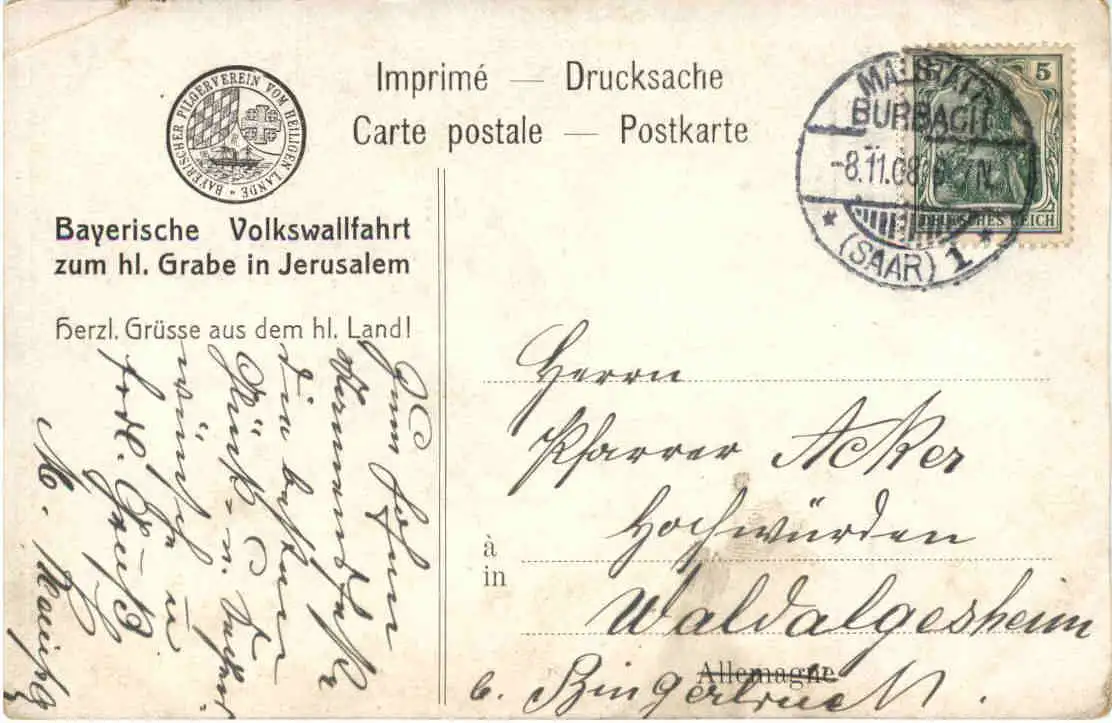 Imprimé — Drucksache
Carte postale — Postkarte
BAYERISCHER PILGERVEREIN VOM HEILIGEN LANDE
Bayerische Volkswallfahrt
zum hl. Grabe in Jerusalem
Herzl. Grüsse aus dem hl. Land!
Zum hohen
Namensfeste
die besten
Glück- u.
wünsche u
frdl. Gruß
M.
MALSTATT-
BURBACH
-8.11.08
(SAAR) 1
5
DEUTSCHES REICH
Herrn
Pfarrer Acker
Hochwürden
à
in
Waldalgesheim
Allemagne
b. Bingerbrück.